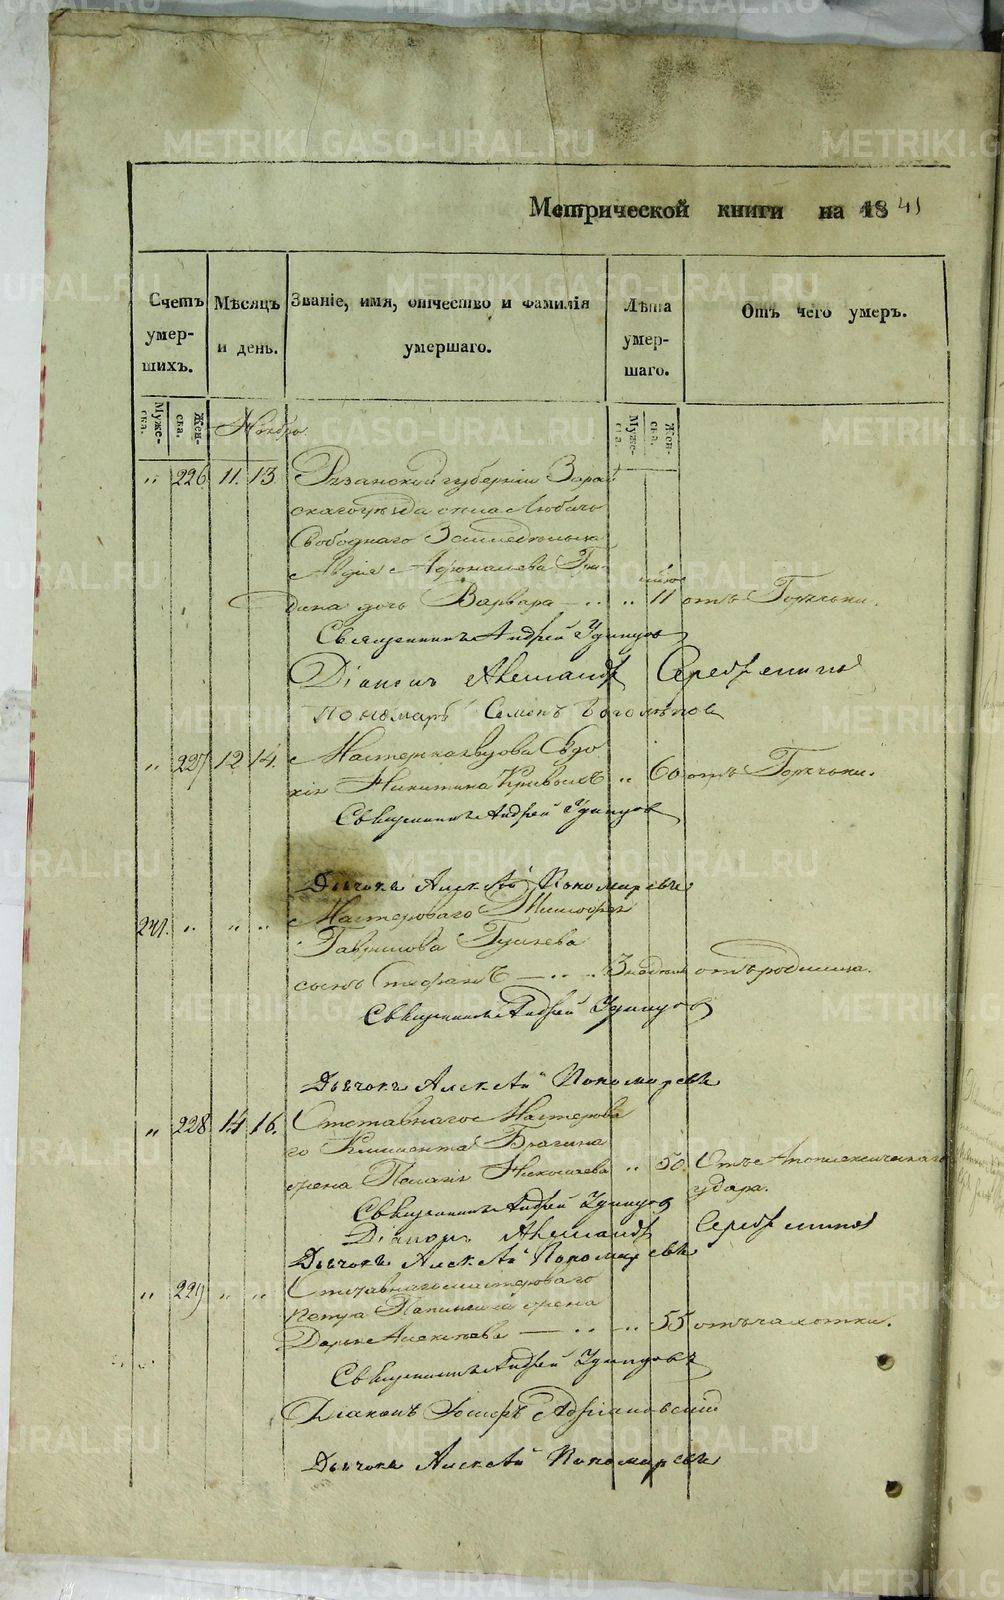 METRIKI.GASO-URAL.RU
Метрической книги на 1841
Счетъ умер- шихъ.
Мѣсяцъ и день.
Званіе, имя, отчество и фамилія умершаго.
Лѣта умер- шаго.
Отъ чего умеръ.
Муже- ска.
Жен- ска.
Ноября
Муже- ска.
Жен- ска.
„ 226. 11. 13. Рязанской губерніи Зарай
скаго уѣзда села Любичь
Свободнаго Земледѣльца
Авдія Афонасьева Гри-
дина дочь Варвара — „ „ 11 отъ Горячьки.
Священникъ Андрей Удинцов
Діаконъ Александръ Серебрениковъ
Пономарь Семенъ Боголѣпов
„ 227 12. 14. Мастеръ вдова Евдо
кія Никитина Кривыхъ „ 60 отъ Горячьки.
Священникъ Андрей Удинцов
Дьячокъ Алексѣй Пономаревъ
241. „ „ „ Мастероваго Тимофея
Гаврилова Гусева
сынъ Стефанъ — „ 3 недѣли отъ родимца.
Священникъ Андрей Удинцов
Дьячокъ Алексѣй Пономаревъ
„ 228 14 16. Отставнаго Мастерова
го Климента Брагина
жена Пелагія Николаева „ 50. Отъ Апоплексическаго
удара.
Священникъ Андрей Удинцов
Діаконъ Александръ Серебрениковъ
Дьячокъ Алексѣй Пономаревъ
„ 229 „ „ Отставнаго мастероваго
Петра жена
Дарья Алексѣева — „ „ 55 отъ чахотки.
Священникъ Андрей Удинцовъ
Діаконъ Іосифъ Адріановскій
Дьячокъ Алексѣй Пономаревъ